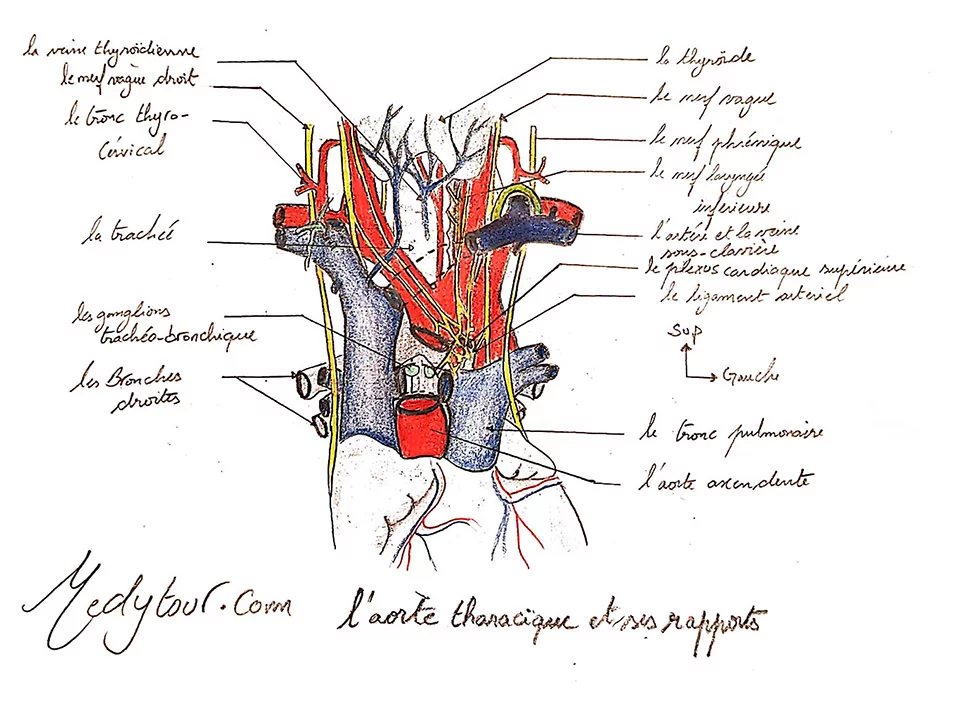 la veine thyroïdienne
le nerf vague droit
le tronc thyro-
cérvical
la traché
les ganglions
trachéo-bronchique
les Bronches
droites
la thyroïde
le nerf vague
le nerf phrénique
le nerf laryngé
inferieure
l'artére et la veine
sous-clavière
le plexus cardiaque supérieure
le ligament arteriel
Sup
Gauche
le tronc pulmonaire
l'aorte ascendente
Medytour.com
l'aorte thoracique et ses rapports